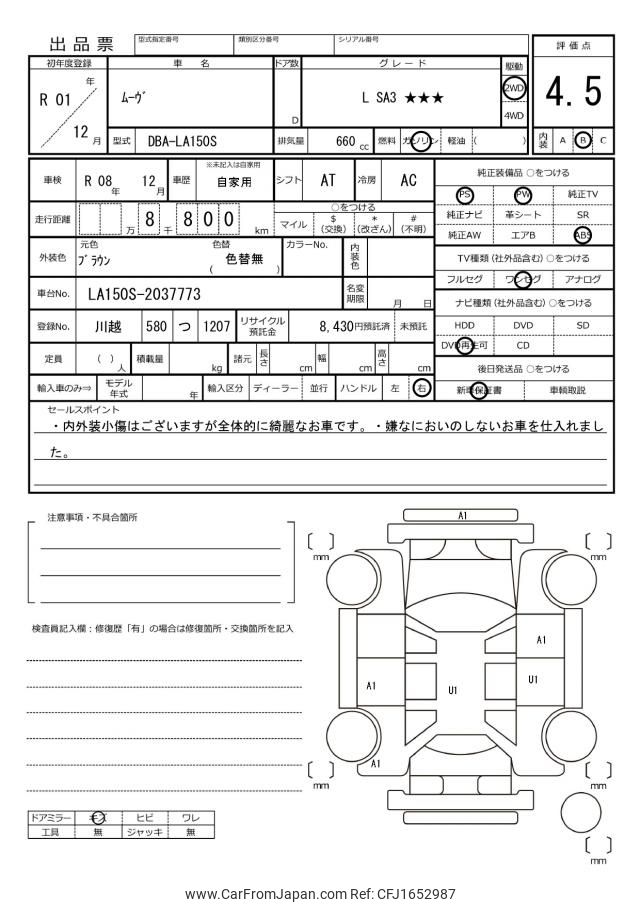 出品票
型式指定番号 類別区分番号 シリアル番号
評価点
4.5
初年度登録 車名 ドア数 グレード 駆動
R 01 年
12 月
ﾑｰｳﾞ
D
L SA3 ★★★
2WD
4WD
型式 DBA-LA150S 排気量 660 cc 燃料 ガソリン 軽油 ( )
内装 A B C
車検 R 08 年 12 月 車歴 ※未記入は自家用 自家用 シフト AT 冷房 AC
純正装備品 ○をつける
PS PW 純正TV
純正ナビ 革シート SR
純正AW エアB ABS
走行距離 万 8 千 8 0 0 km
○をつける
マイル $(交換) *(改ざん) #(不明)
外装色 元色 ﾌﾞﾗｳﾝ 色替 ( 色替無 ) カラーNo. 内装色
TV種類 (社外品含む) ○をつける
フルセグ ワンセグ アナログ
車台No. LA150S-2037773 名変期限 月 日
ナビ種類 (社外品含む) ○をつける
HDD DVD SD
DVD再生可 CD
登録No. 川越 580 つ 1207 リサイクル預託金 8,430円預託済 未預託
定員 ( ) 人 積載量 kg 諸元 長さ cm 幅 cm 高さ cm
後日発送品 ○をつける
新車保証書 車輌取説
輸入車のみ⇒ モデル年式 年 輸入区分 ディーラー 並行 ハンドル 左 右
セールスポイント
・内外装小傷はございますが全体的に綺麗なお車です。・嫌なにおいのしないお車を仕入れまし
た。
注意事項・不具合箇所
検査員記入欄：修復歴「有」の場合は修復箇所・交換箇所を記入
A1
mm
mm
A1
A1
U1
U1
A1
mm
mm
mm
ドアミラー キズ ヒビ ワレ
工具 無 ジャッキ 無
www.CarFromJapan.com Ref: CFJ1652987